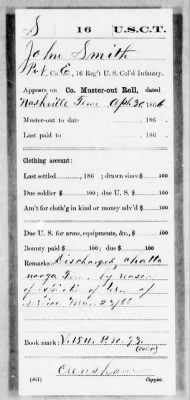 S | 16 | U.S.C.T.
John Smith
Pvt, Co. E, 16 Reg't U. S. Col'd Infantry.
Appears on Co. Muster-out Roll, dated
Nashville Tenn Apl 30, 1866.
Muster-out to date , 186 .
Last paid to , 186 .
Clothing account:
Last settled , 186 ; drawn since $ 100
Due soldier $ 100; due U. S. $ 100
Am't for cloth'g in kind or money adv'd $ 100
Due U. S. for arms, equipments, &c., $ 100
Bounty paid $ 100; due $ 100
Remarks: Discharged Chatta
nooga Tenn. by reason
of expiration of term of
service
Book mark:
(over)
Crenshaw
(861) Copyist.